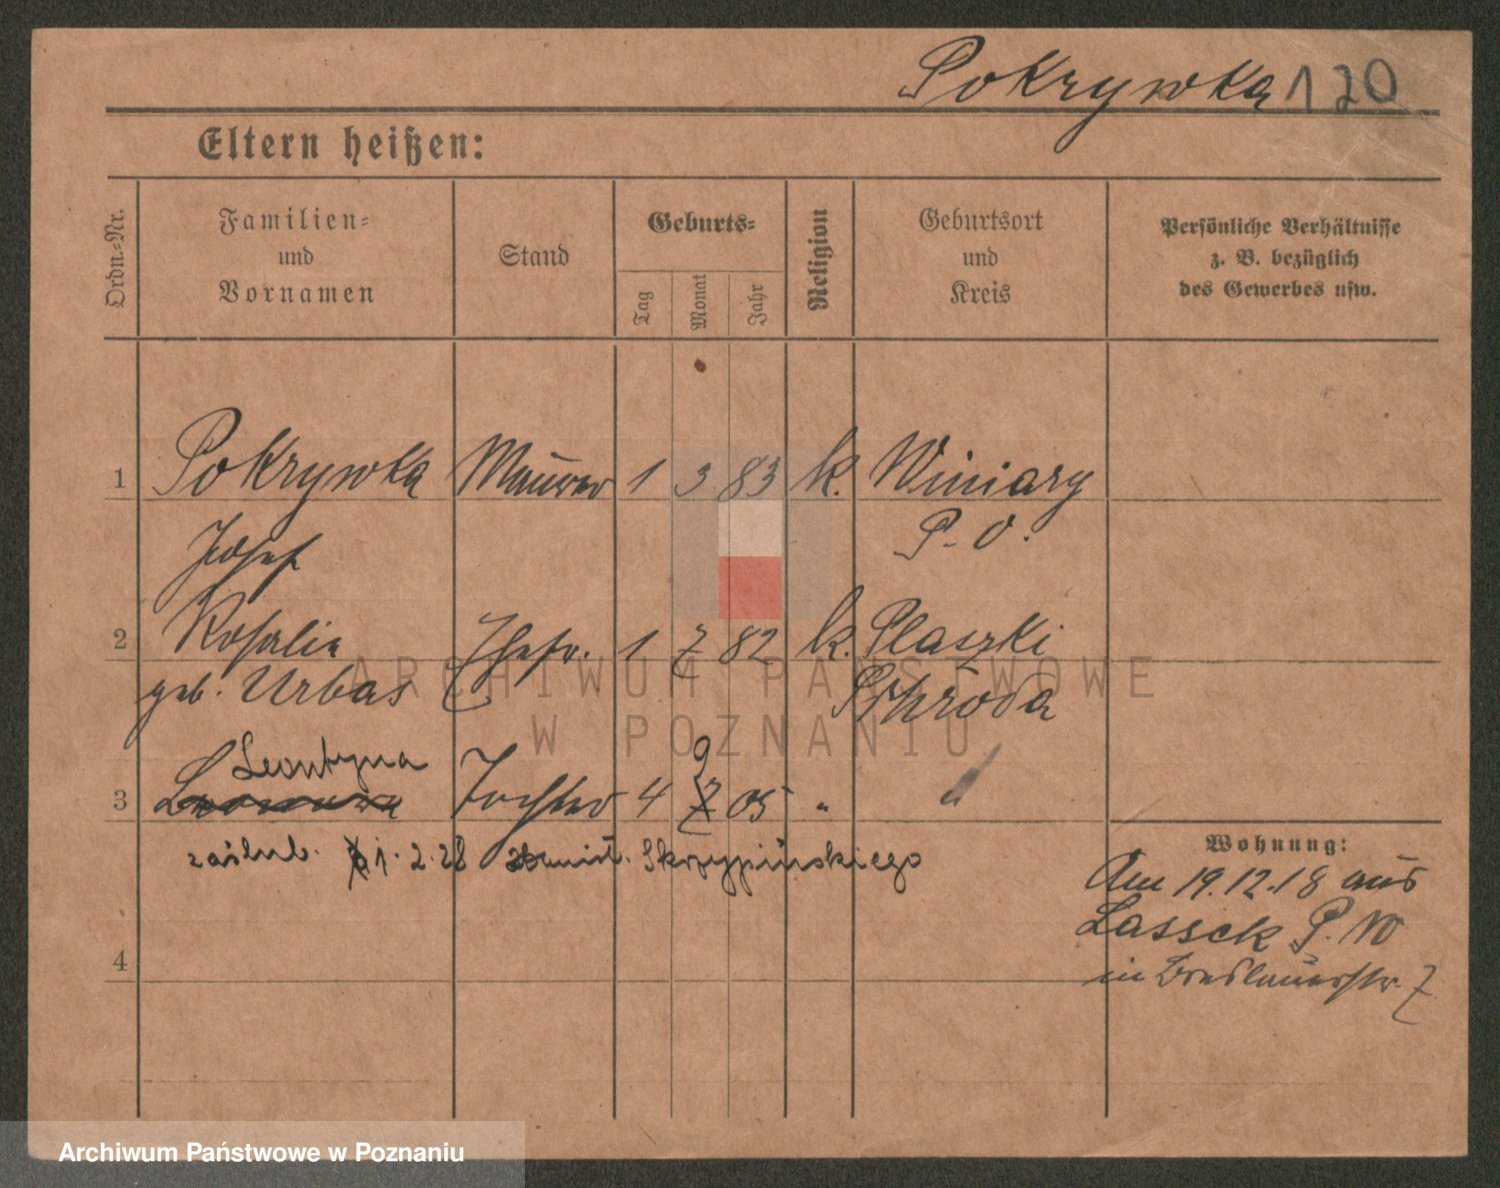 Pokrywka 120
Eltern heißen:
Ordn.-Nr.
Familien- und Vornamen
Stand
Geburts-
Tag
Monat
Jahr
Religion
Geburtsort und Kreis
Persönliche Verhältnisse z. B. bezüglich des Gewerbes usw.
1 Pokrywka Maurer 1 3 83 k. Winiary
Josef P. O.
2 Rosalie Ehefr. 1 7 82 k. Plaszki
geb. Urbas Schroda
Leontyna 9
3 Tochter 4 7 05 "
zaślub. 1. 2. 28 Skrzypińskiego
Wohnung:
Am 19.12.18 aus
Lassek P. W
4 in Breslauerstr. 7
ARCHIWUM PAŃSTWOWE
W POZNANIU
Archiwum Państwowe w Poznaniu